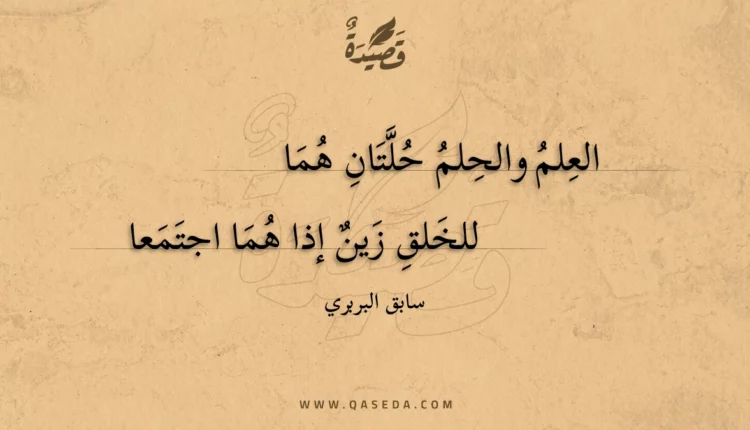 قَصِيْدَةٌ
العِلمُ والحِلمُ حُلَّتَانِ هُمَا
للخَلقِ زَينٌ إذا هُمَا اجتَمَعا
سابق البربري
WWW.QASEDA.COM